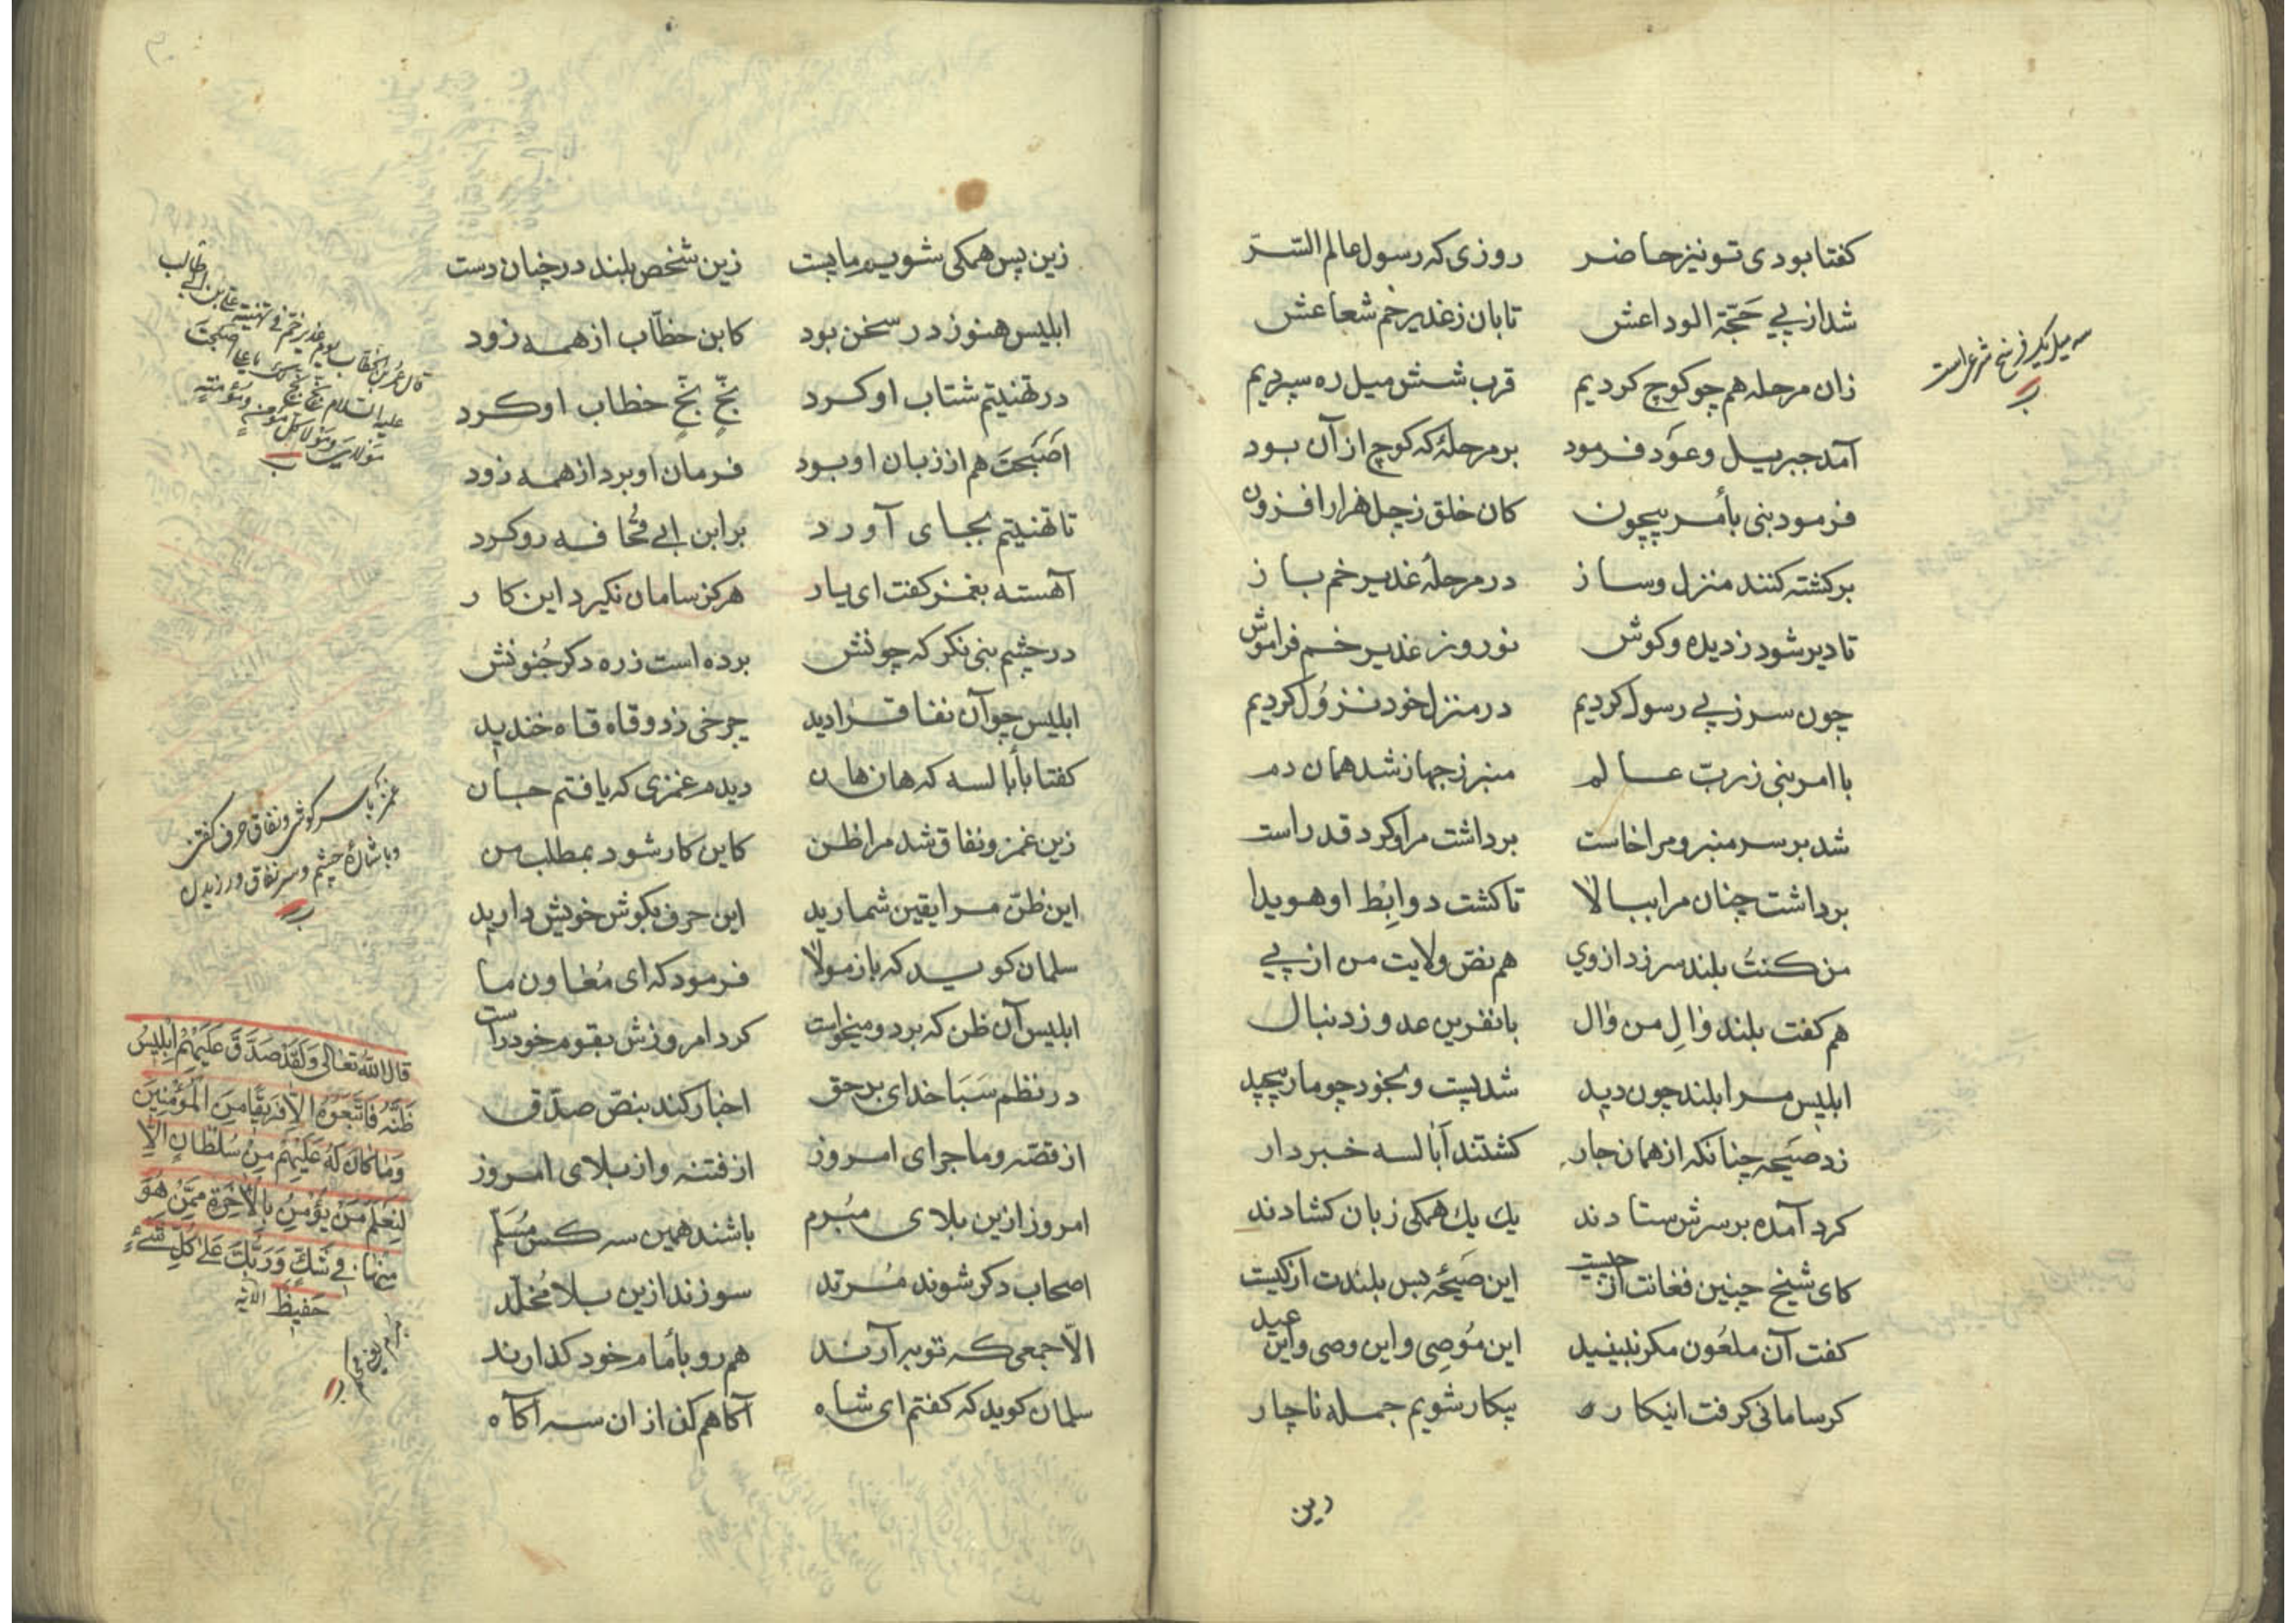 کفتا بودی تو نیز حاضر روزی که رسول عالم السّرّ
شد از پی حَجّة الوداعش تابان ز غدیر خم شعاعش
زان مرحله هم چو کوچ کردیم قرب شش میل ره سپردیم
آمد جبریل و عَود فرمود بر مرحلهٔ که کوچ از آن بود
فرمود نبی بأمر بیچون کان خلق ز چل هزار افزون
برکشته کنند منزل و ساز در مرحلهٔ غدیر خم باز
تا دیر شود ز دیده و کوش نوروز غدیر خم فراموش
چون سر ز پی رسول کردیم در منزل خود نزُول کردیم
با امر نبی ز ربّ عالم منبر ز جهاز شد همان دم
شد بر سر منبر و مرا خاست برداشت مرا و کرد قد راست
برداشت چنان مرا ببالا تا کشت دو ابِط او هویدا
من کنتُ بلند سر زد از وی هم نصّ ولایت من از پی
هم کفت بلند والِ من وال با نفرین عدو ز دنبال
ابلیس مرا بلند چون دید شد پست و بخود چو مار پیچید
زد صَیحه چنانکه از همان جار کشتند اَبالسه خبردار
کرد آمده بر سرش ستادند یك یك همکی زبان کشادند
کای شیخ چنین فغانت از چیست این صَیحَه بس بلندت از کیست
کفت آن ملعُون مکر نبینید این مُوصِی و این وصی و این عید
کر سامانی کرفت اینکاره بیکار شویم جمله ناچار
زین
سه میل یک فرسخ شرعی است
زین پس همکی شویم ما پست زین شخص بلند در چنان دست
ابلیس هنوز در سخن بود کابن خطّاب از همه زود
در تهنیتم شتاب او کرد بخّ بخّ خطاب او کرد
اصَبَحتَ هم از زبان او بود فرمان او برد از همه زود
تا تهنیتم بجای آورد بر ابن ابی قُحافه رو کرد
آهسته بغمز کفت ای یار هرکز سامان نکیرد این کار
در چشم نبی نکر که چونش برده است ز ره دکر جُنونش
ابلیس چو آن نفاقرا دید چرخی زد و قاه قاه خندید
کفتا بأبالسه که هان هان دیدم غمزی که یافتم جان
زین غمز و نفاق شد مرا ظن کاین کار شود بمطلب من
این ظنّ مرا یقین شمارید این حرف بکوش خویش دارید
سلمان کوید که باز مولا فرمود که ای مُعاون ما
ابلیس آن ظن که برد و میخواست کرد امروزش بقوم خود راست
در نظم سَبَا خدای بر حق اخبار کند بنصّ صدّق
از قصّه و ماجرای امروز از فتنه و از بلای امروز
امروز ازین بلای مبُرم باشند همین سه کس مُسَلّم
اصحاب دکر شوند مُرتد سوزند ازین بلا مُخلّد
الّا جمعی که توبه آرند هم رو بأمام خود کذارند
سلمان کوید که کفتم ای شاه آکاهم کن از ان سه آکاه
قال عمر بن الخطاب یوم غدیر خمّ فی تهنیة علیّ بن ابی طالب
علیه السّلام بخّ بخّ لك یا علی اصبحت
مَولای و مَولا کل مؤمن و مؤمنة
غمز با سر کوشی و نفاق حرف کفتن
و باشارهٔ چشم و سر نفاق ورزیدن
قال اللّه تعالی وَلَقَدْ صَدَّقَ عَلَیْهِمْ اِبْلِیسُ
ظَنَّهُ فَاتَّبَعُوهُ اِلَّا فَرِیقًا مِنَ الْمُؤْمِنِینَ
وَمَا کَانَ لَهُ عَلَیْهِمْ مِنْ سُلْطَانٍ اِلَّا
لِنَعْلَمَ مَنْ یُؤْمِنُ بِالْآخِرَةِ مِمَّنْ هُوَ
مِنْهَا فِی شَكٍّ وَرَبُّكَ عَلَی کُلِّ شَیْءٍ
حَفِیظٌ الآیه